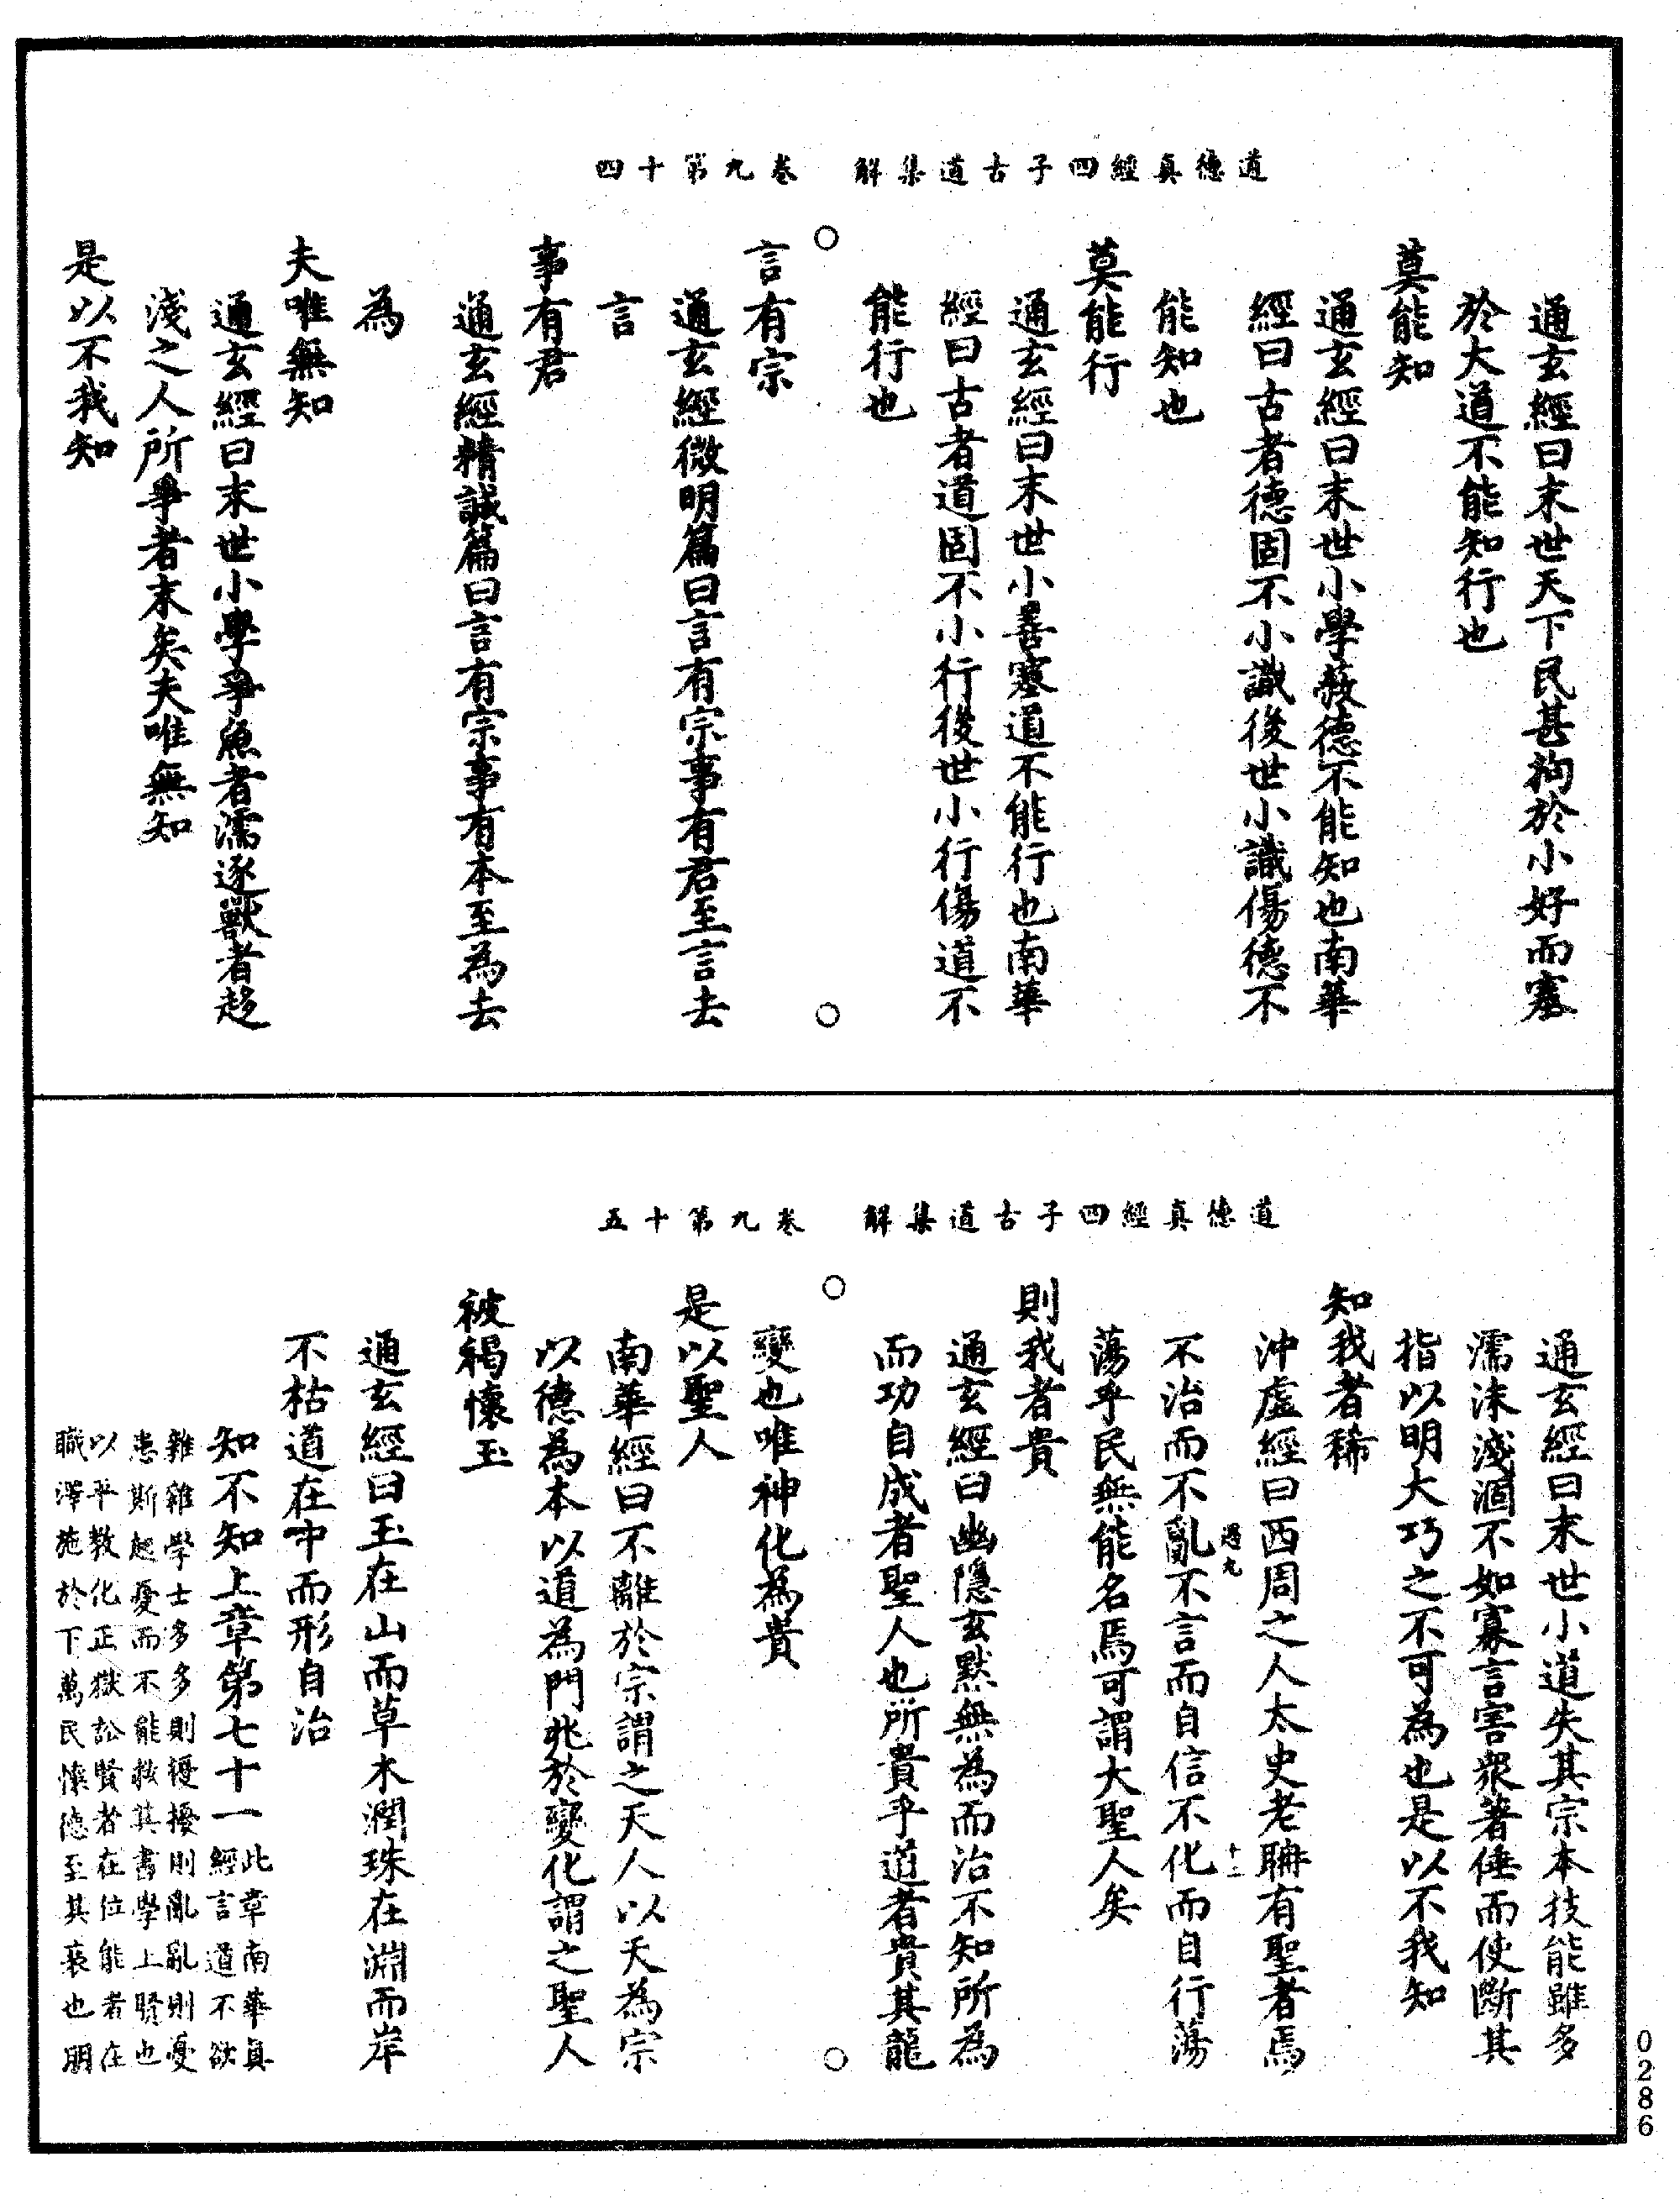 道德真經四子古道集解　卷九第十四
通玄經曰末世天下民甚拘於小好而塞
於大道不能知行也
莫能知
通玄經曰末世小學蔽德不能知也南華
經曰古者德固不小識後世小識傷德不
能知也
莫能行
通玄經曰末世小善塞道不能行也南華
經曰古者道固不小行後世小行傷道不
能行也
言有宗
通玄經微明篇曰言有宗事有君至言去
言
事有君
通玄經精誠篇曰言有宗事有本至為去
為
夫唯無知
通玄經曰末世小學爭魚者濡逐獸者趍
淺之人所爭者末矣夫唯無知
是以不我知
道德真經四子古道集解　卷九第十五
通玄經曰末世小道失其宗本技能雖多
濡沫淺涸不如寡言害眾著倕而使斷其
指以明大巧之不可為也是以不我知
知我者稀
沖虛經曰西周之人太史老聃有聖者焉
不治而不亂不言而自信不化而自行蕩
過九
十二
蕩乎民無能名焉可謂大聖人矣
則我者貴
通玄經曰幽隱玄默無為而治不知所為
而功自成者聖人也所貴乎道者貴其龍
變也唯神化為貴
是以聖人
南華經曰不離於宗謂之天人以天為宗
以德為本以道為門兆於變化謂之聖人
被褐懷玉
通玄經曰玉在山而草木潤珠在淵而岸
不枯道在中而形自治
知不知上章第七十一
此章南華真
經言道不欲
雜雜學士多多則擾擾則亂亂則憂
患斯起憂而不能救其書學上賢也
以平教化正獄訟賢者在位能者在
職澤施於下萬民懷德至其衰也朋
0286